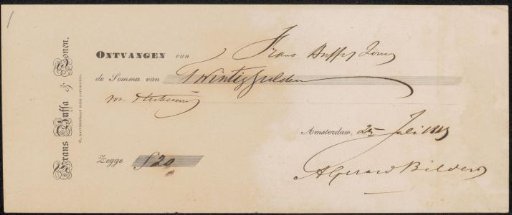 Frans Buffa & Zonen.
ONTVANGEN van Frans Buffa & Zonen
de Somma van Twintig gulden
Amsterdam, 25 Juli
Zegge f 20
A Gerard Bilders